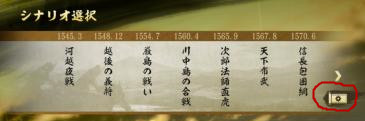 シナリオ選択
1545.3
1548.12
1554.7
1560.4
1565.9
1567.8
1570.6
河越夜戦
越後の義将
厳島の戦い
川中島の合戦
次郎法師直虎
天下布武
信長包囲網